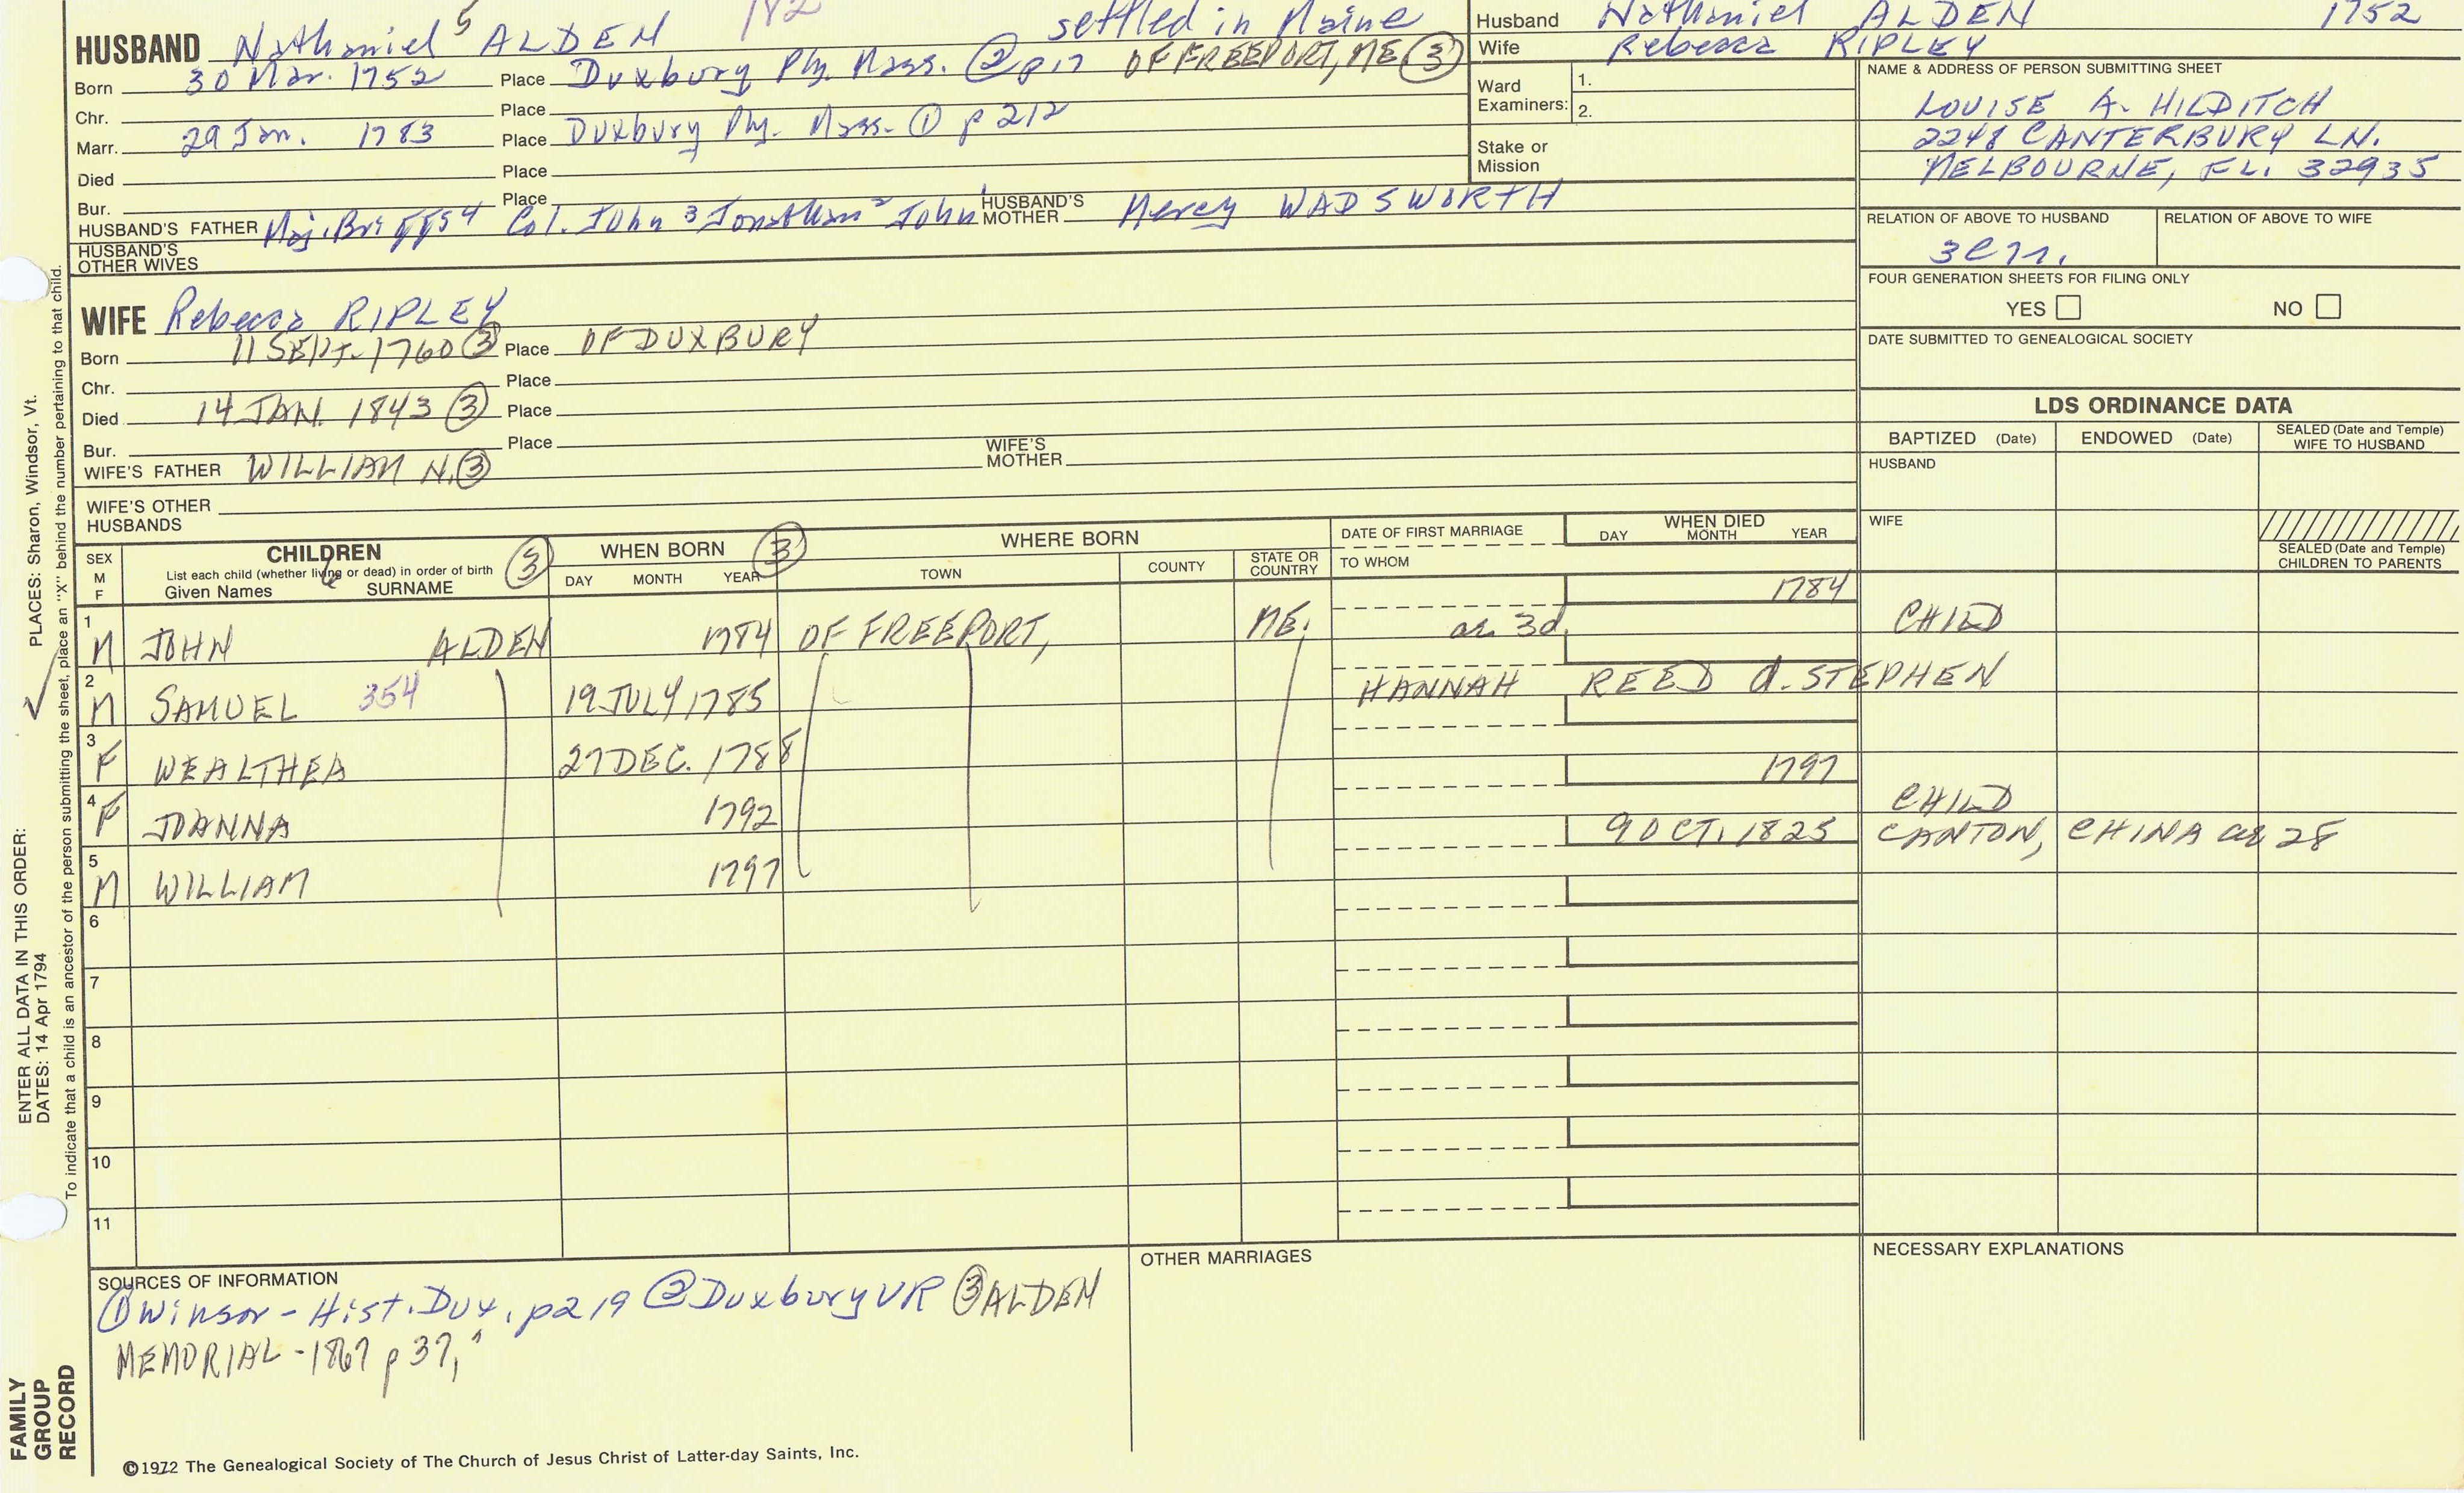 182
settled in Maine
HUSBAND Nathaniel 5 ALDEN
Born 30 Mar. 1752 Place Duxbury Ply. Mass. ② p 17 OF FREEPORT, ME ③
Chr. Place
Marr. 29 Jan. 1783 Place Duxbury Ply. Mass. ① p 212
Died Place
Bur. Place
HUSBAND'S FATHER Maj. Briggs 4 Col. John 3 Jonathan 2 John ' HUSBAND'S MOTHER Mercy WADSWORTH
HUSBAND'S OTHER WIVES
WIFE Rebecca RIPLEY
Born 11 SEPT. 1760 ③ Place OF DUXBURY
Chr. Place
Died 14 JAN. 1843 ③ Place
Bur. Place
WIFE'S FATHER WILLIAM N. ③ WIFE'S MOTHER
WIFE'S OTHER HUSBANDS
Husband Nathaniel ALDEN 1752
Wife Rebecca RIPLEY
Ward Examiners: 1.
2.
Stake or Mission
NAME & ADDRESS OF PERSON SUBMITTING SHEET
LOUISE A. HILDITCH
2248 CANTERBURY LN.
MELBOURNE, FL. 32935
RELATION OF ABOVE TO HUSBAND RELATION OF ABOVE TO WIFE
FOUR GENERATION SHEETS FOR FILING ONLY
YES NO
DATE SUBMITTED TO GENEALOGICAL SOCIETY
LDS ORDINANCE DATA
BAPTIZED (Date) ENDOWED (Date) SEALED (Date and Temple) WIFE TO HUSBAND
HUSBAND
WIFE
SEALED (Date and Temple) CHILDREN TO PARENTS
SEX M F
CHILDREN ③
List each child (whether living or dead) in order of birth
Given Names 6 SURNAME
WHEN BORN ③
DAY MONTH YEAR
WHERE BORN
TOWN COUNTY STATE OR COUNTRY
DATE OF FIRST MARRIAGE
TO WHOM
WHEN DIED
DAY MONTH YEAR
1 M JOHN ALDEN 1784 OF FREEPORT, ME. 1784 ae. 3d. CHILD
2 M SAMUEL 354 19 JULY 1785 HANNAH REED d. STEPHEN
3 F WEALTHEA 27 DEC. 1788
4 F JOANNA 1792 1797 CHILD
5 M WILLIAM 1797 9 OCT. 1825 CANTON, CHINA ae 28
6
7
8
9
10
11
SOURCES OF INFORMATION
① Winsor - Hist. Dux. p 219 ② Duxbury VR ③ ALDEN
MEMORIAL - 1867 p 37,
OTHER MARRIAGES
NECESSARY EXPLANATIONS
©1972 The Genealogical Society of The Church of Jesus Christ of Latter-day Saints, Inc.
FAMILY
GROUP
RECORD
ENTER ALL DATA IN THIS ORDER:
DATES: 14 Apr 1794
PLACES: Sharon, Windsor, Vt.
To indicate that a child is an ancestor of the person submitting the sheet, place an "X" behind the number pertaining to that child.